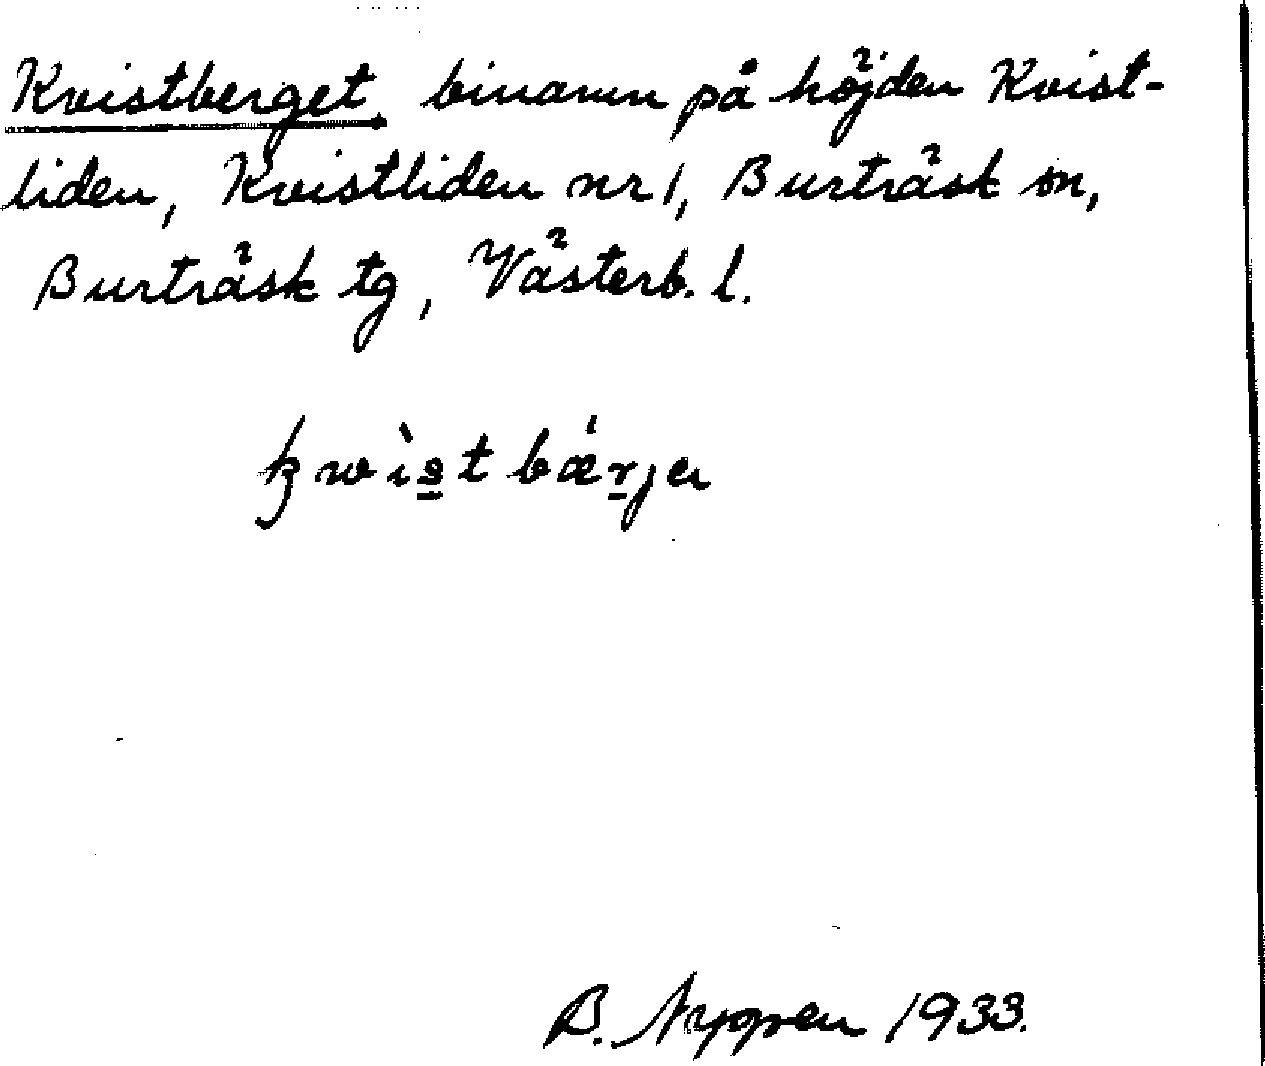 Kvistberget, binamn på höjden Kvist-
liden, Kvistliden nr 1, Burträsk sn,
Burträsk tg, Västerb. l.
kwìs̲tbǽr̲ja
B. Nygren 1933.